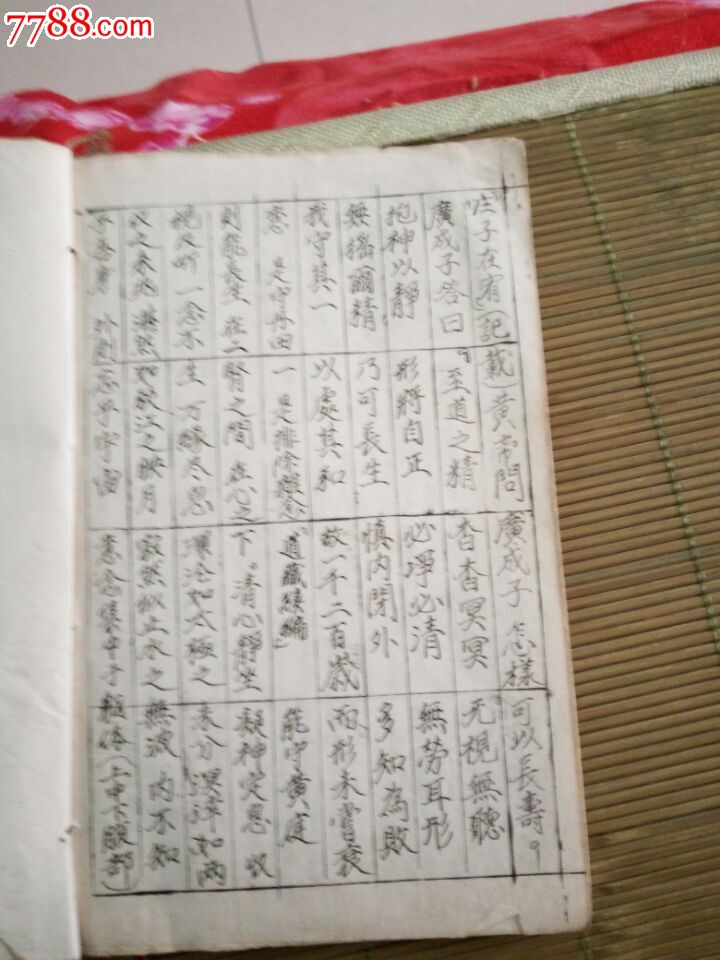 7788.com
庄子在宥(記載)黄帝問廣成子怎樣可以長壽?
廣成子答曰至道之精杳杳冥冥无視無聽
抱神以靜形將自正必淨必清無勞耳形
搖爾精乃可長生慎内閉外多知為敗
我守其一以處其和故一千二百歲而形未嘗衰
意 是守丹田 一是排除雜念「道藏續編」能守黄庭
則能長生 在二腎之間 在心之下。清心靜坐凝神定息 收
視反听 一念不生 万緣尽息渾淪如太極之未分 溟涬如两
仪之未兆 湛然如秋江之映月寂然似止水之無波 内不知
乎吾身 外則忘乎宇宙意念集中于体(上中下腹部)